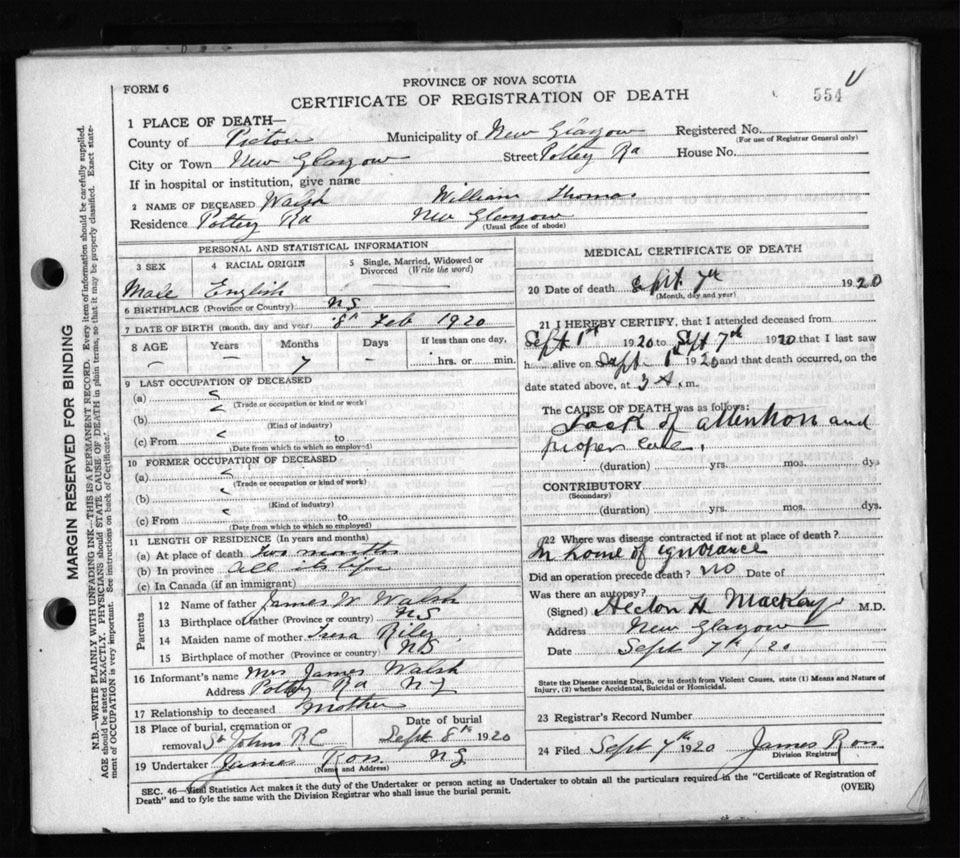 PROVINCE OF NOVA SCOTIA
FORM 6
CERTIFICATE OF REGISTRATION OF DEATH
554
1 PLACE OF DEATH—
County of Pictou Municipality of New Glasgow Registered No.
(For use of Registrar General only)
City or Town New Glasgow Street Pottey Rd House No.
If in hospital or institution, give name
2 NAME OF DECEASED Walsh William Thomas
Residence Pottery Rd New Glasgow
(Usual place of abode)
PERSONAL AND STATISTICAL INFORMATION
3 SEX
4 RACIAL ORIGIN
5 Single, Married, Widowed or Divorced (Write the word)
Male English
6 BIRTHPLACE (Province or Country) NS
7 DATE OF BIRTH (month, day and year) 8th Feb 1920
8 AGE Years Months Days If less than one day,
— — 7 — hrs. or min.
9 LAST OCCUPATION OF DECEASED
(a)
(Trade or occupation or kind or work)
(b)
(Kind of industry)
(c) From to
(Date from which to which so employed)
10 FORMER OCCUPATION OF DECEASED
(a)
(Trade or occupation or kind of work)
(b)
(Kind of industry)
(c) From to
(Date from which to which so employed)
11 LENGTH OF RESIDENCE (In years and months)
(a) At place of death two months
(b) In province all its life
(c) In Canada (if an immigrant)
Parents
12 Name of father James W Walsh
13 Birthplace of father (Province or country) NS
14 Maiden name of mother Tresa Riley
15 Birthplace of mother (Province or country) NS
16 Informant's name Mrs James Walsh
Address Pottey Rd NS
17 Relationship to deceased Mother
18 Place of burial, cremation or removal St Johns R.C
Date of burial Sept 8th 1920
19 Undertaker James Ross NS
(Name and Address)
MEDICAL CERTIFICATE OF DEATH
20 Date of death Sept. 7th 1920
(Month, day and year)
21 I HEREBY CERTIFY, that I attended deceased from
Sept 1st 1920 to Sept 7th 1920 that I last saw
h alive on Sept 1st 1920 and that death occurred, on the
date stated above, at 3 A. m.
The CAUSE OF DEATH was as follows:
Lack of attention and
proper care.
(duration) yrs. mos. dys
CONTRIBUTORY
(Secondary)
(duration) yrs. mos. dys.
22 Where was disease contracted if not at place of death?
In home of ignorance
Did an operation precede death? no Date of
Was there an autopsy?
(Signed) Hector H MacKay M.D.
Address New Glasgow
Date Sept 7th, 20
State the Disease causing Death, or in death from Violent Causes, state (1) Means and Nature of
Injury, (2) whether Accidental, Suicidal or Homicidal.
23 Registrar's Record Number
24 Filed Sept 7th 1920 James Ross
Division Registrar
SEC. 46—Vital Statistics Act makes it the duty of the Undertaker or person acting as Undertaker to obtain all the particulars required in the "Certificate of Registration of
Death" and to fyle the same with the Division Registrar who shall issue the burial permit.
(OVER)
MARGIN RESERVED FOR BINDING
N.B.—WRITE PLAINLY WITH UNFADING INK—THIS IS A PERMANENT RECORD. Every item of information should be carefully supplied.
AGE should be stated EXACTLY. PHYSICIANS should STATE CAUSE OF DEATH in plain terms, so that it may be properly classified. Exact statement of OCCUPATION is very important. See instructions on back of Certificate.